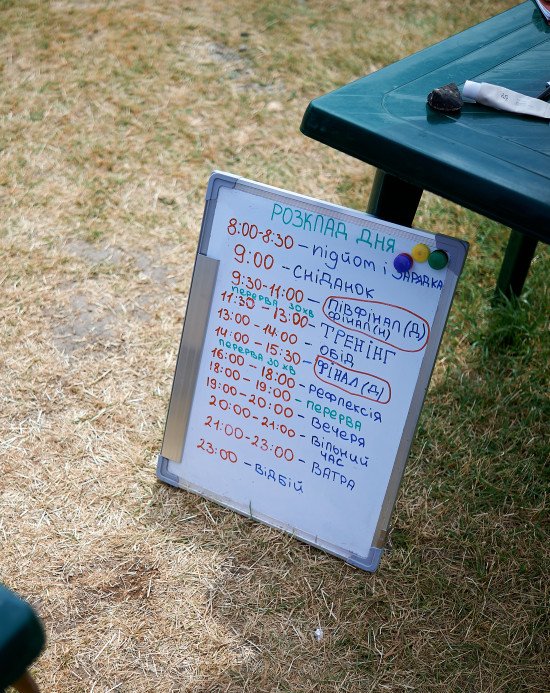 РОЗКЛАД ДНЯ
8:00-8:30 – підйом і ЗАРЯДКА
9:00 – СНІДАНОК
9:30-11:00 – ПІВФІНАЛ (Д)
ПЕРЕРВА 30 ХВ ФІНАЛ (Н)
11:30 – 13:00 – ТРЕНІНГ
13:00 – 14:00 ОБІД
14:00 – 15:30 – ФІНАЛ (Д)
ПЕРЕРВА 30 ХВ
16:00 – 18:00 – РЕФЛЕКСІЯ
18:00 – 19:00 – ПЕРЕРВА
19:00 – 20:00 – ВЕЧЕРЯ
20:00 – 21:00 – ВІЛЬНИЙ ЧАС
21:00 – 23:00 – ВАТРА
23:00 – ВІДБІЙ